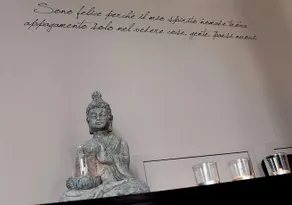 Sono felice perchè il mio spirito nomade trova
appagamento solo nel vedere cose, gente, paesi nuovi.